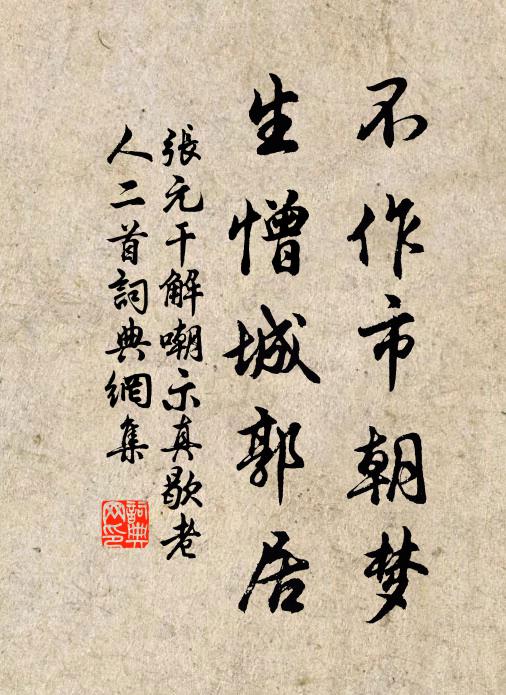 不作市朝梦
生憎城郭居
張元干解嘲示真歇老
人二首詞典網集
詞典
网印